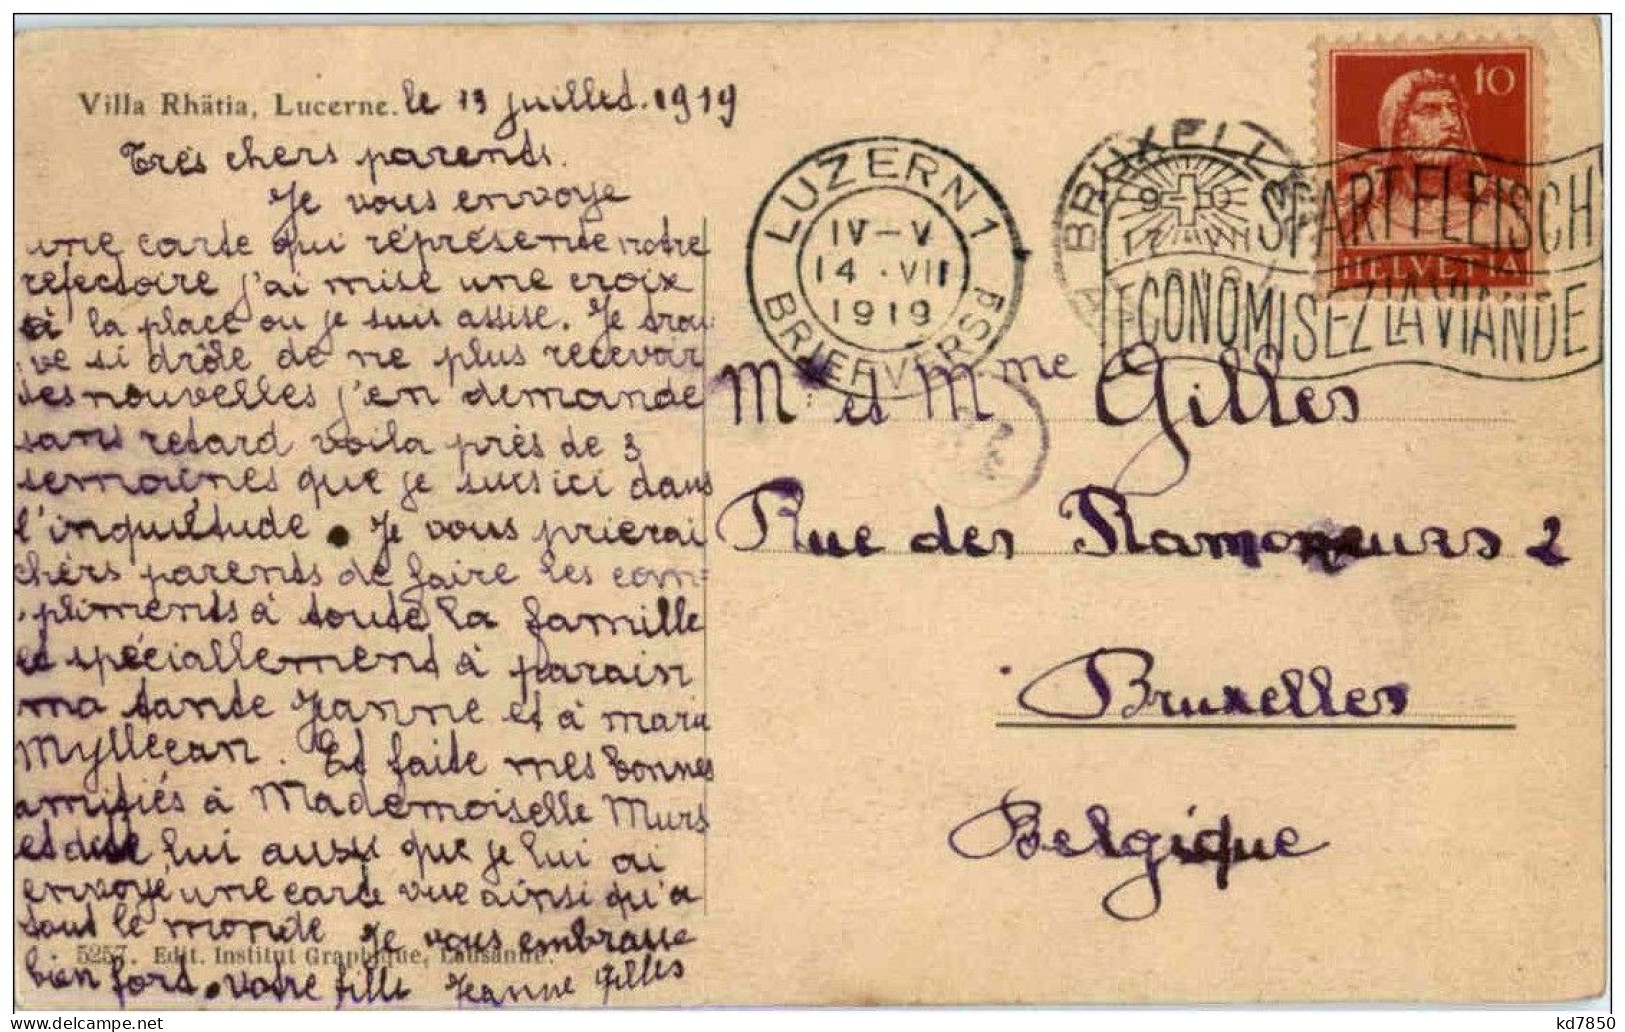 Villa Rhätia, Lucerne. le 13 juilled. 1919
Très chers parends.
Je vous envoye
une carde qui réprésende notre
refectoire j'ai mise une croix
à la place ou je suis assise. Je trou
ve si drôle de ne plus recevoir
des nouvelles j'en demande
sans retard voila près de 3
semaines que je suis ici dans
l'inquiétude. Je vous prierai
chèrs parends de faire les com=
pliments à toute la famille
et spéciallemend à parain
ma tande Jeanne et à maria
Myllecan. Et faite mes bonnes
amitiés à Mademoiselle Murs
et dise lui aussi que je lui ai
envoyé une carde vue ainsi qu'à
tout le monde Je vous embrasse
bien ford. Votre fille Jeanne Gilles
5257. Edit. Institut Graphique, Lausanne.
LUZERN 1
IV-V
14.VII
1919
BRIEFVERSD
BRUXELLES
SPART FLEISCH
ECONOMISEZ LA VIANDE
10
HELVETIA
Mr et Mme Gilles
Rue des Ramoneurs 2
Bruxelles
Belgique
kd7850